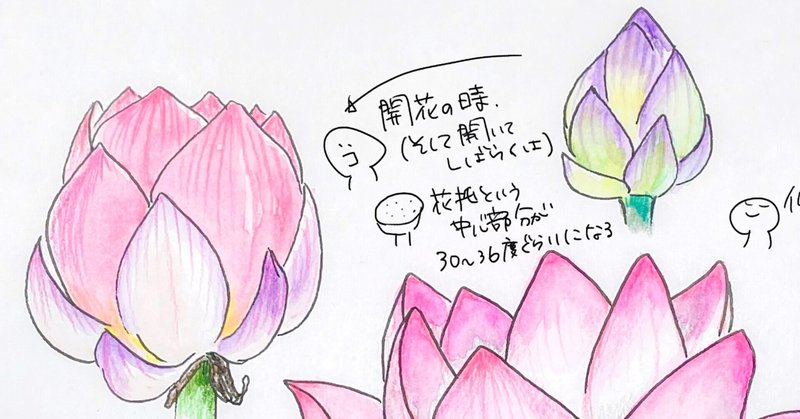 開花の時、
(そして開いて
しばらくは)
花托という
中心部分が
30〜36度ぐらいになる